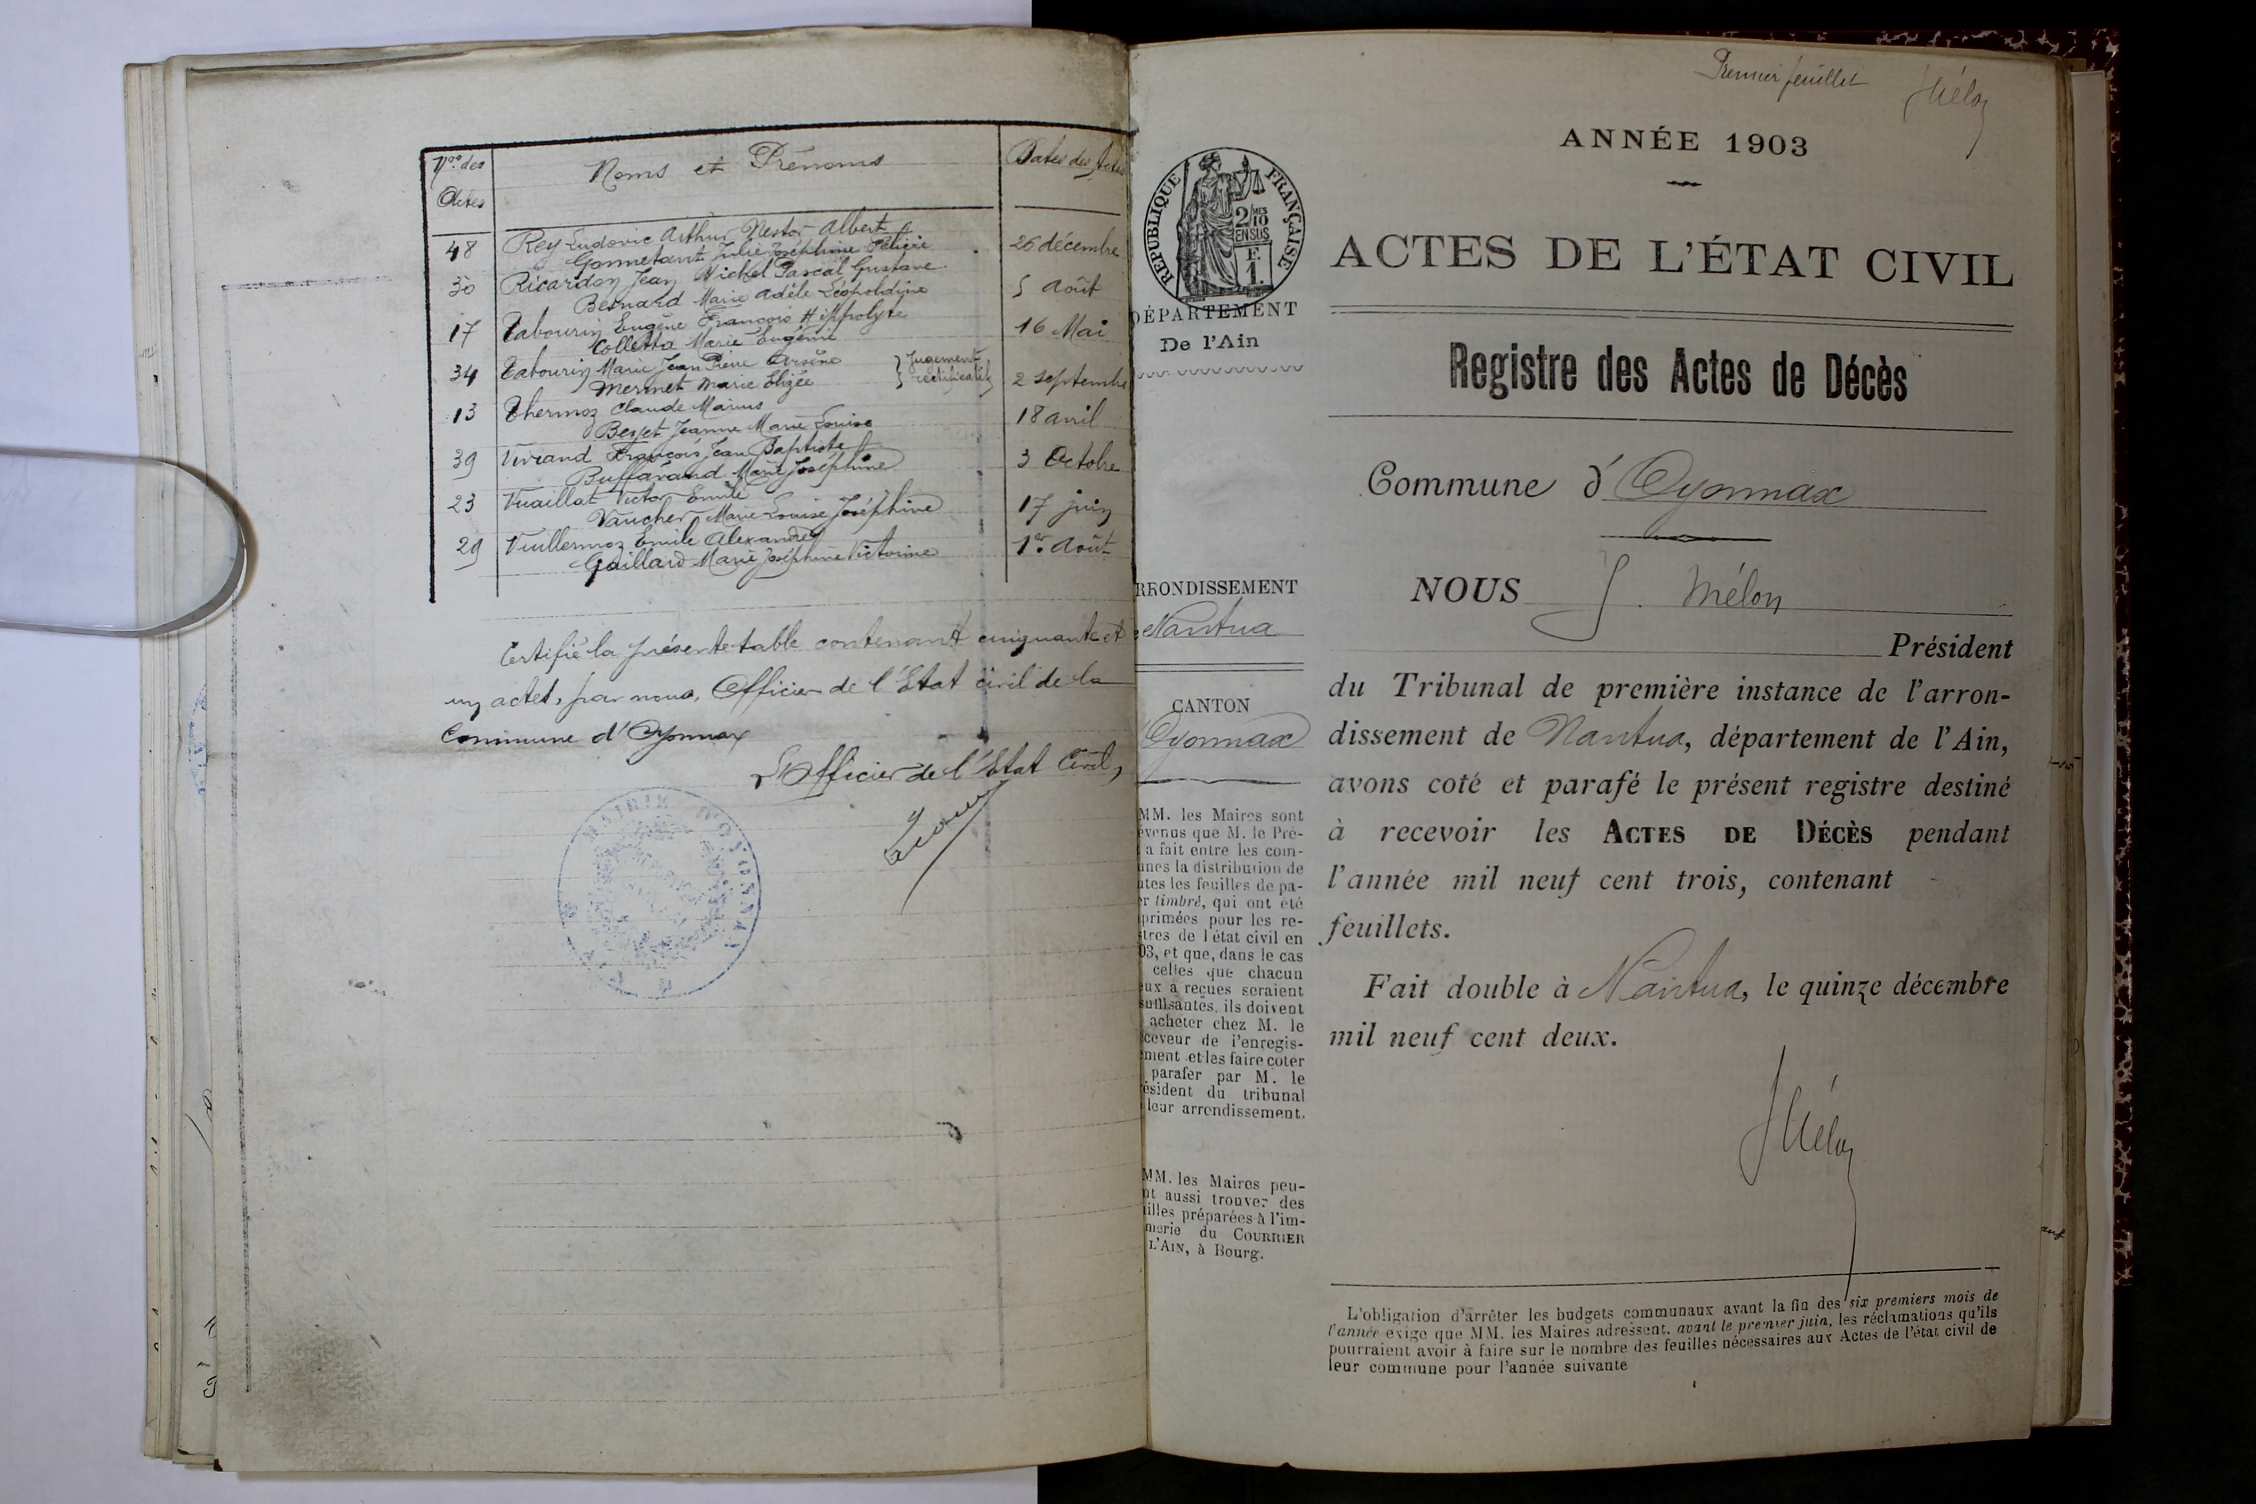 Nos des
Actes
Noms et Prénoms
Dates des Actes
48 Rey Ludovic Arthur Nestor Albert
Gonnetant Julie Joséphine Félicie
26 décembre
30 Ricardon Jean Michel Pascal Gustave
Besnard Marie Adèle Léopoldine
5 Août
17 Tabourin Eugène François Hippolyte
Colletta Marie Eugénie
16 Mai
34 Tabourin Marie Jean Pierre Arsène
Mermet Marie Elizée
Jugement
rectificatif
2 septembre
13 Thermoz Claude Marius
Berset Jeanne Marie Louise
18 avril
39 Vivrand François Jean Baptiste
Buffavand Marie Joséphine
3 Octobre
23 Vuaillat Victor Emile
Vaucher Marie Louise Joséphine
17 juin
29 Vuillermoz Emile Alexandre
Gaillard Marie Joséphine Victorine
1er Août
Certifié la présente table contenant cinquante et
un actes, par nous, Officier de l'Etat civil de la
Commune d'Oyonnax
L'Officier de l'Etat Civil,
MAIRIE D'OYONNAX
Premier feuillet
JMélon
ANNÉE 1903
RÉPUBLIQUE FRANÇAISE
2/10MES
EN SUS
F.
1.
DÉPARTEMENT
De l'Ain
ACTES DE L'ÉTAT CIVIL
Registre des Actes de Décès
Commune d'Oyonnax
RRONDISSEMENT
e Nantua
CANTON
d'Oyonnax
MM. les Maires sont
évenus que M. le Pré-
t a fait entre les com-
unes la distribution de
utes les feuilles de pa-
er timbré, qui ont été
primées pour les re-
stres de l'état civil en
03, et que, dans le cas
celles que chacun
eux a reçues seraient
suffisantes, ils doivent
acheter chez M. le
ceveur de l'enregis-
ment et les faire coter
parafer par M. le
ésident du tribunal
leur arrondissement.
MM. les Maires peu-
nt aussi trouver des
illes préparées à l'im-
merie du COURRIER
L'AIN, à Bourg.
NOUS J. Mélon
Président
du Tribunal de première instance de l'arron-
dissement de Nantua, département de l'Ain,
avons coté et parafé le présent registre destiné
à recevoir les ACTES DE DÉCÈS pendant
l'année mil neuf cent trois, contenant
feuillets.
Fait double à Nantua, le quinze décembre
mil neuf cent deux.
JMélon
L'obligation d'arrêter les budgets communaux avant la fin des six premiers mois de
l'année exige que MM. les Maires adressent, avant le premier juin, les réclamations qu'ils
pourraient avoir à faire sur le nombre des feuilles nécessaires aux Actes de l'état civil de
leur commune pour l'année suivante